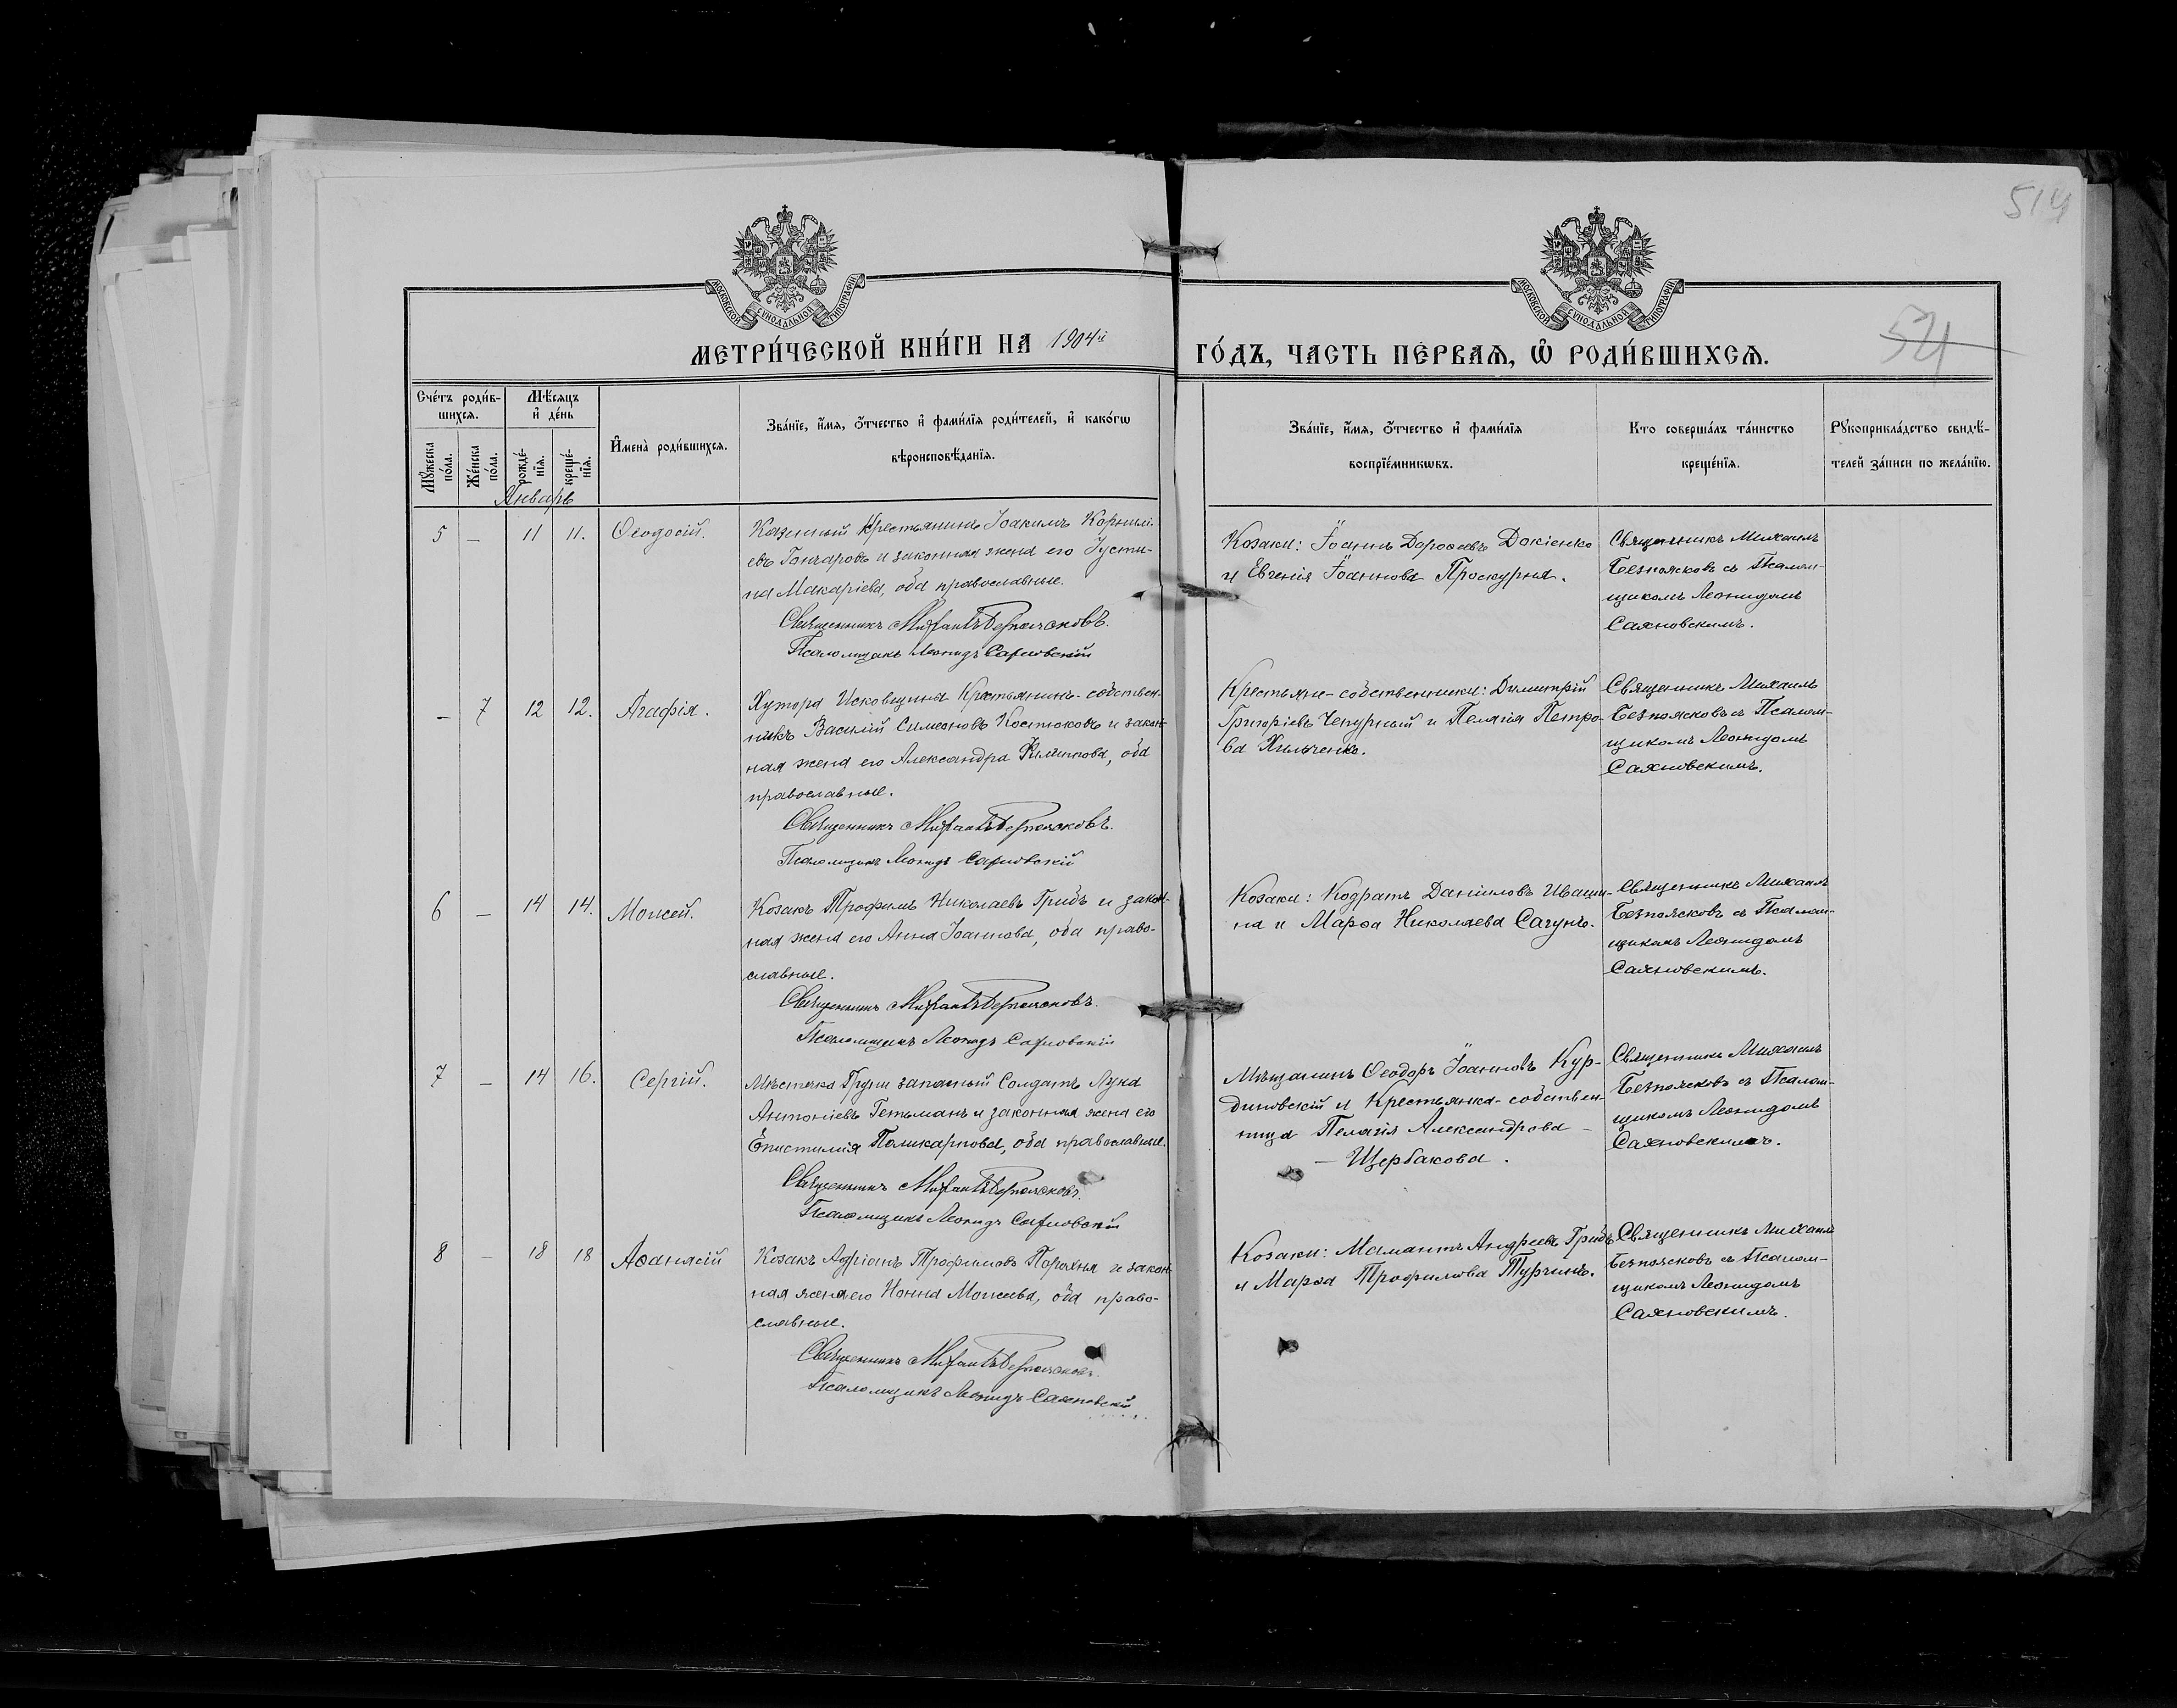 514
54
МОСКОВСКОЙ СУНОДАЛЬНОЙ ТИПОГРАФІИ
МОСКОВСКОЙ СУНОДАЛЬНОЙ ТИПОГРАФІИ
МЕТРИ́ЧЕСКОЙ КНИ́ГИ НА 1904й
ГО́ДЪ, ЧАСТЬ ПЕ́РВАѦ, Ѽ РОДИ́ВШИХСѦ.
Сче́тъ роди́в-
шихсѧ.
Мѣ́сѧцъ
и҆ де́нь
Мꙋ́жеска
по́ла.
Же́нска
по́ла.
рожде́-
нїѧ.
креще́-
нїѧ.
И҆мена̀ роди́вшихсѧ.
Зва́нїе, и҆́мѧ, ѻ҆́тчество и҆ фами́лїѧ роди́телей, и҆ како́гѡ
вѣроисповѣ́данїѧ.
Зва́нїе, и҆́мѧ, ѻ҆́тчество и҆ фами́лїѧ
воспрїе́мникѡвъ.
Кто соверша́лъ та́инство
креще́нїѧ.
Рꙋкоприкла́дство свидѣ́-
телей за́писи по жела́нїю.
Январь
5 — 11 11. Ѳеодосій.
Казенный Крестьянинъ Іоакимъ Корнилі-
евъ Гончаровъ и законная жена его Іусти-
на Макаріева, оба православные.
Священникъ Михаилъ Безпоясковъ.
Псаломщикъ Леонидъ Сахновскій
Козаки: Іоаннъ Дороѳеевъ Докіенко
и Евгенія Іоаннова Проскурня.
Священникъ Михаилъ
Безпоясковъ съ Псалом-
щикомъ Леонидомъ
Сахновскимъ.
— 7 12 12. Агафія.
Хутора Исковщина Крестьянинъ-собствен-
никъ Василій Симеоновъ Костюковъ и закон-
ная жена его Александра Филиппова, оба
православные.
Священникъ Михаилъ Безпоясковъ.
Псаломщикъ Леонидъ Сахновскій
Крестьяне-собственники: Димитрій
Григоріевъ Чепурный и Пелагія Петро-
ва Хильченко.
Священникъ Михаилъ
Безпоясковъ съ Псалом-
щикомъ Леонидомъ
Сахновскимъ.
6 — 14 14. Моисей.
Козакъ Трофимъ Николаевъ Гридь и закон-
ная жена его Анна Іоаннова, оба право-
славные.
Священникъ Михаилъ Безпоясковъ.
Псаломщикъ Леонидъ Сахновскій
Козаки: Кодратъ Даніиловъ Иващи-
на и Марѳа Николаева Сагунъ.
Священникъ Михаилъ
Безпоясковъ съ Псалом-
щикомъ Леонидомъ
Сахновскимъ.
7 — 14 16. Сергій.
Мѣстечка Груни запасный Солдатъ Лука
Антоніевъ Гетьманъ и законная жена его
Епистимія Поликарпова, оба православные.
Священникъ Михаилъ Безпоясковъ.
Псаломщикъ Леонидъ Сахновскій
Мѣщанинъ Ѳеодоръ Іоанновъ Кур-
диновскій и Крестьянка-собствен-
ница Пелагія Александрова —
— Щербакова.
Священникъ Михаилъ
Безпоясковъ съ Псалом-
щикомъ Леонидомъ
Сахновскимъ.
8 — 18 18 Аѳанасій
Козакъ Адріанъ Трофимовъ Порохня и закон-
ная жена его Нонна Моисеева, оба право-
славные.
Священникъ Михаилъ Безпоясковъ.
Псаломщикъ Леонидъ Сахновскій
Козаки: Мамантъ Андреевъ Гридь
и Марѳа Трофимова Турчинъ.
Священникъ Михаилъ
Безпоясковъ съ Псалом-
щикомъ Леонидомъ
Сахновскимъ.